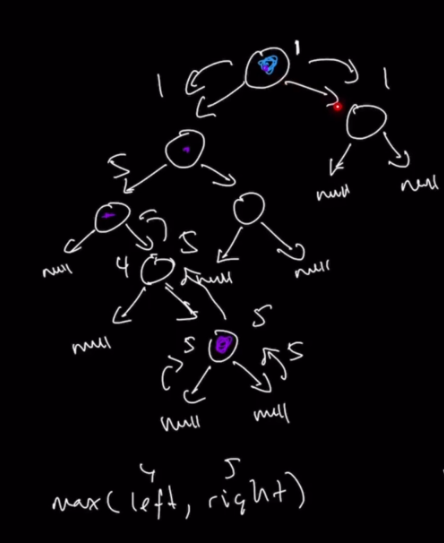 1
1 1
5
null null
5
null 4 5 null null
null 5
5 5
null null
4 5
max(left, right)